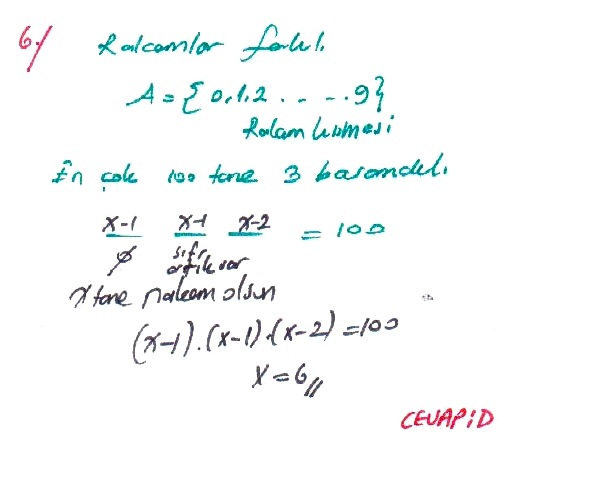 6-/ Rakamlar farklı.
A = {0,1,2 . . - - . 9}
Rakam kümesi
En çok 100 tane 3 basamaklı.
x-1 x-1 x-2 = 100
∅ sıfır
artık var
x tane rakam olsun
(x-1).(x-1).(x-2)=100
x=6//
CEVAP:D